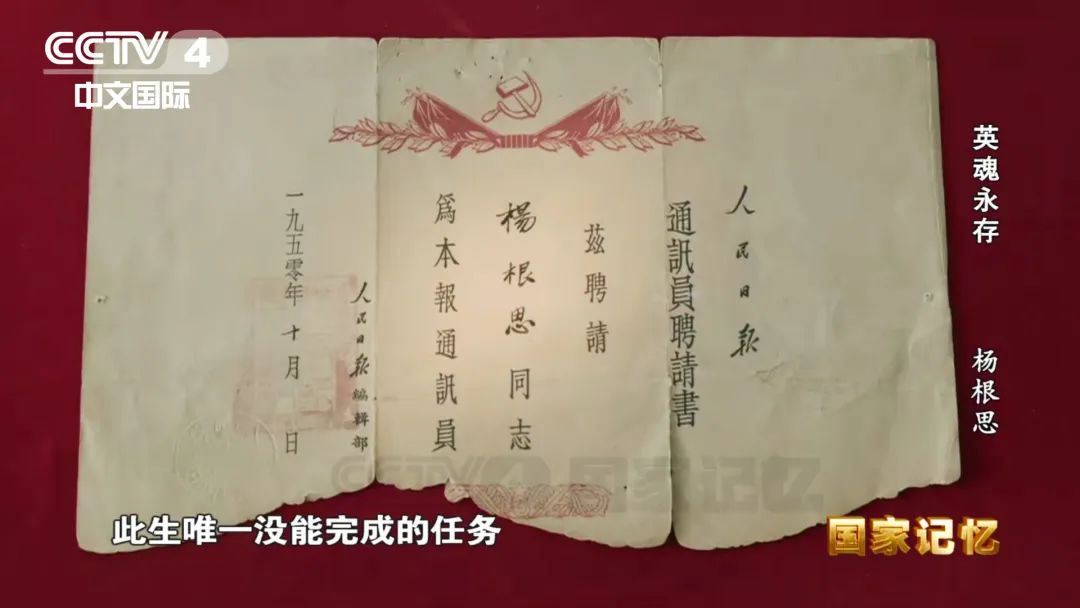 CCTV 4
中文国际
英魂永存
杨根思
人民日报
通訊員聘請書
茲聘請
楊根思同志
爲本報通訊員
人民日报編輯部
一九五零年十月 日
CCTV 4 国家记忆
此生唯一没能完成的任务
国家记忆